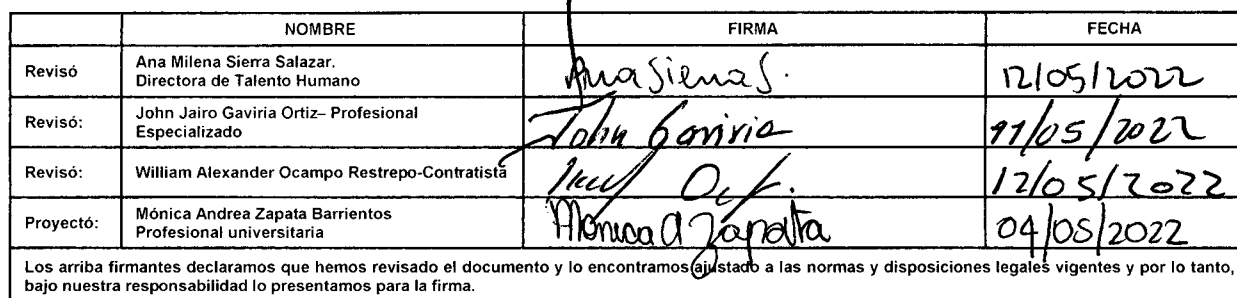 NOMBRE FIRMA FECHA
Revisó Ana Milena Sierra Salazar. Directora de Talento Humano Ana Sierra S. 12/05/2022
Revisó: John Jairo Gaviria Ortiz– Profesional Especializado John Gaviria 11/05/2022
Revisó: William Alexander Ocampo Restrepo-Contratista 12/05/2022
Proyectó: Mónica Andrea Zapata Barrientos Profesional universitaria Mónica A Zapata 04/05/2022
Los arriba firmantes declaramos que hemos revisado el documento y lo encontramos ajustado a las normas y disposiciones legales vigentes y por lo tanto,
bajo nuestra responsabilidad lo presentamos para la firma.